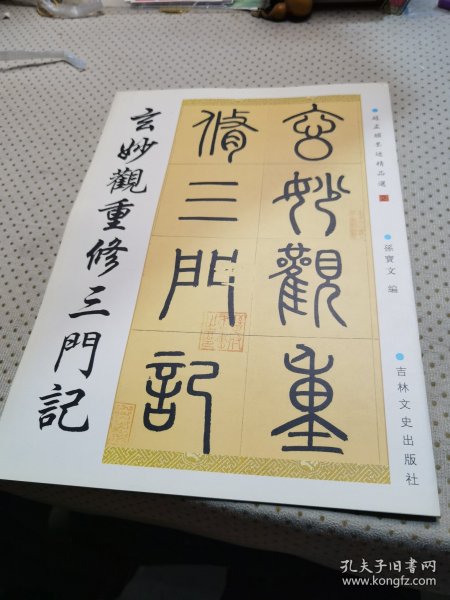 玄妙觀重修三門記
玄妙觀重
脩三門記
趙孟頫墨迹精品選
孫寶文 編
吉林文史出版社
孔夫子旧书网
www.kongfz.com